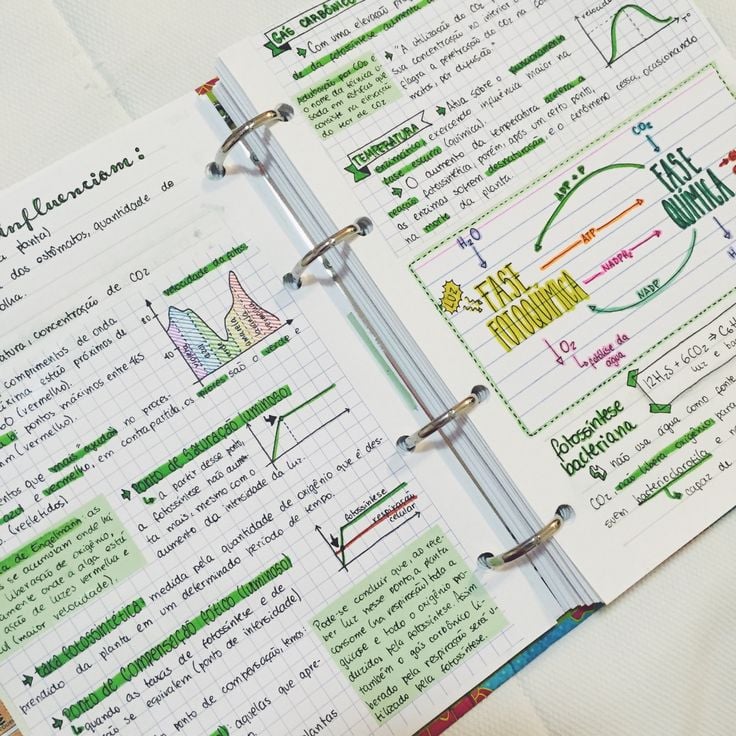 influenciam:
planta)
dos estômatos, quantidade de
folha.
concentração de CO2
comprimentos de onda
estão próximos de
(vermelho).
pontos máximos entre 465
(vermelho).
mais no proces-
azul e vermelho, em contrapartida, os piores são o verde e
(refletidos).
de Engelmann: as
se acumulam onde há
liberação de oxigênio,
onde a alga está
ação de luzes vermelha e
(maior velocidade).
velocidade da fotos.
Ponto de Saturação (luminoso)
a partir desse ponto,
a fotossíntese não aumen-
ta mais, mesmo com o
aumento da intensidade da luz.
taxa fotossintética: medida pela quantidade de oxigênio que é des-
prendido da planta em um determinado período de tempo.
fotossíntese
respiração
celular
Ponto de Compensação Fótico (luminoso)
quando as taxas de fotossíntese e de
se equivalem (ponto de intensidade)
ponto de compensação, temos:
aquelas que apre-
plantas
Pode-se concluir que, ao rece-
ber luz nesse ponto, a planta
consome (na respiração) toda a
glicose e todo o oxigênio pro-
duzidos pela fotossíntese. Assim
também o gás carbônico li-
berado pela respiração será u-
tilizado pela fotossíntese.
GÁS CARBÔNICO
Com uma elevação
de da fotossíntese aumenta
Adubação por CO2 é
o nome da técnica u-
sada em estufas que
consiste na elevação
do teor de CO2
"A utilização do CO2
sua concentração no interior
flagra a penetração do CO2 na
por difusão."
velocidade
TºC
TEMPERATURA
Ativa sobre o funcionamento
enzimático, exercendo influência maior na
fase escura (química).
O aumento da temperatura acelera a
reação fotossintética, porém, após um certo ponto,
as enzimas sofrem desnaturação, e o fenômeno cessa, ocasionando
na morte da planta.
CO2
ADP + P
FASE
QUÍMICA
H2O
ATP
NADPH2
NADP
LUZ
FASE
FOTOQUÍMICA
O2
fotólise da
água
fotossíntese
bacteriana
12H2S + 6CO2
luz e
não usa água como
CO2, não libera oxigênio para
suem bacterioclorofila e
capaz de